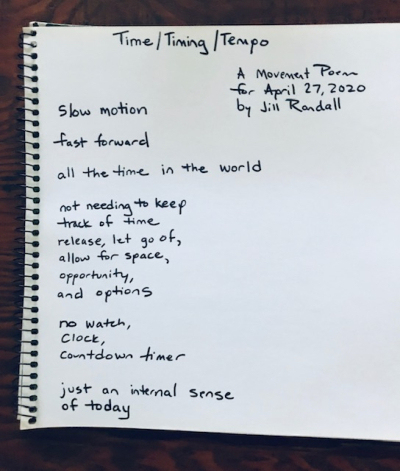 Time/Timing/Tempo
A Movement Poem
for April 27, 2020
by Jill Randall
slow motion
fast forward
all the time in the world
not needing to keep
track of time
release, let go of,
allow for space,
opportunity,
and options
no watch,
clock,
countdown timer
just an internal sense
of today